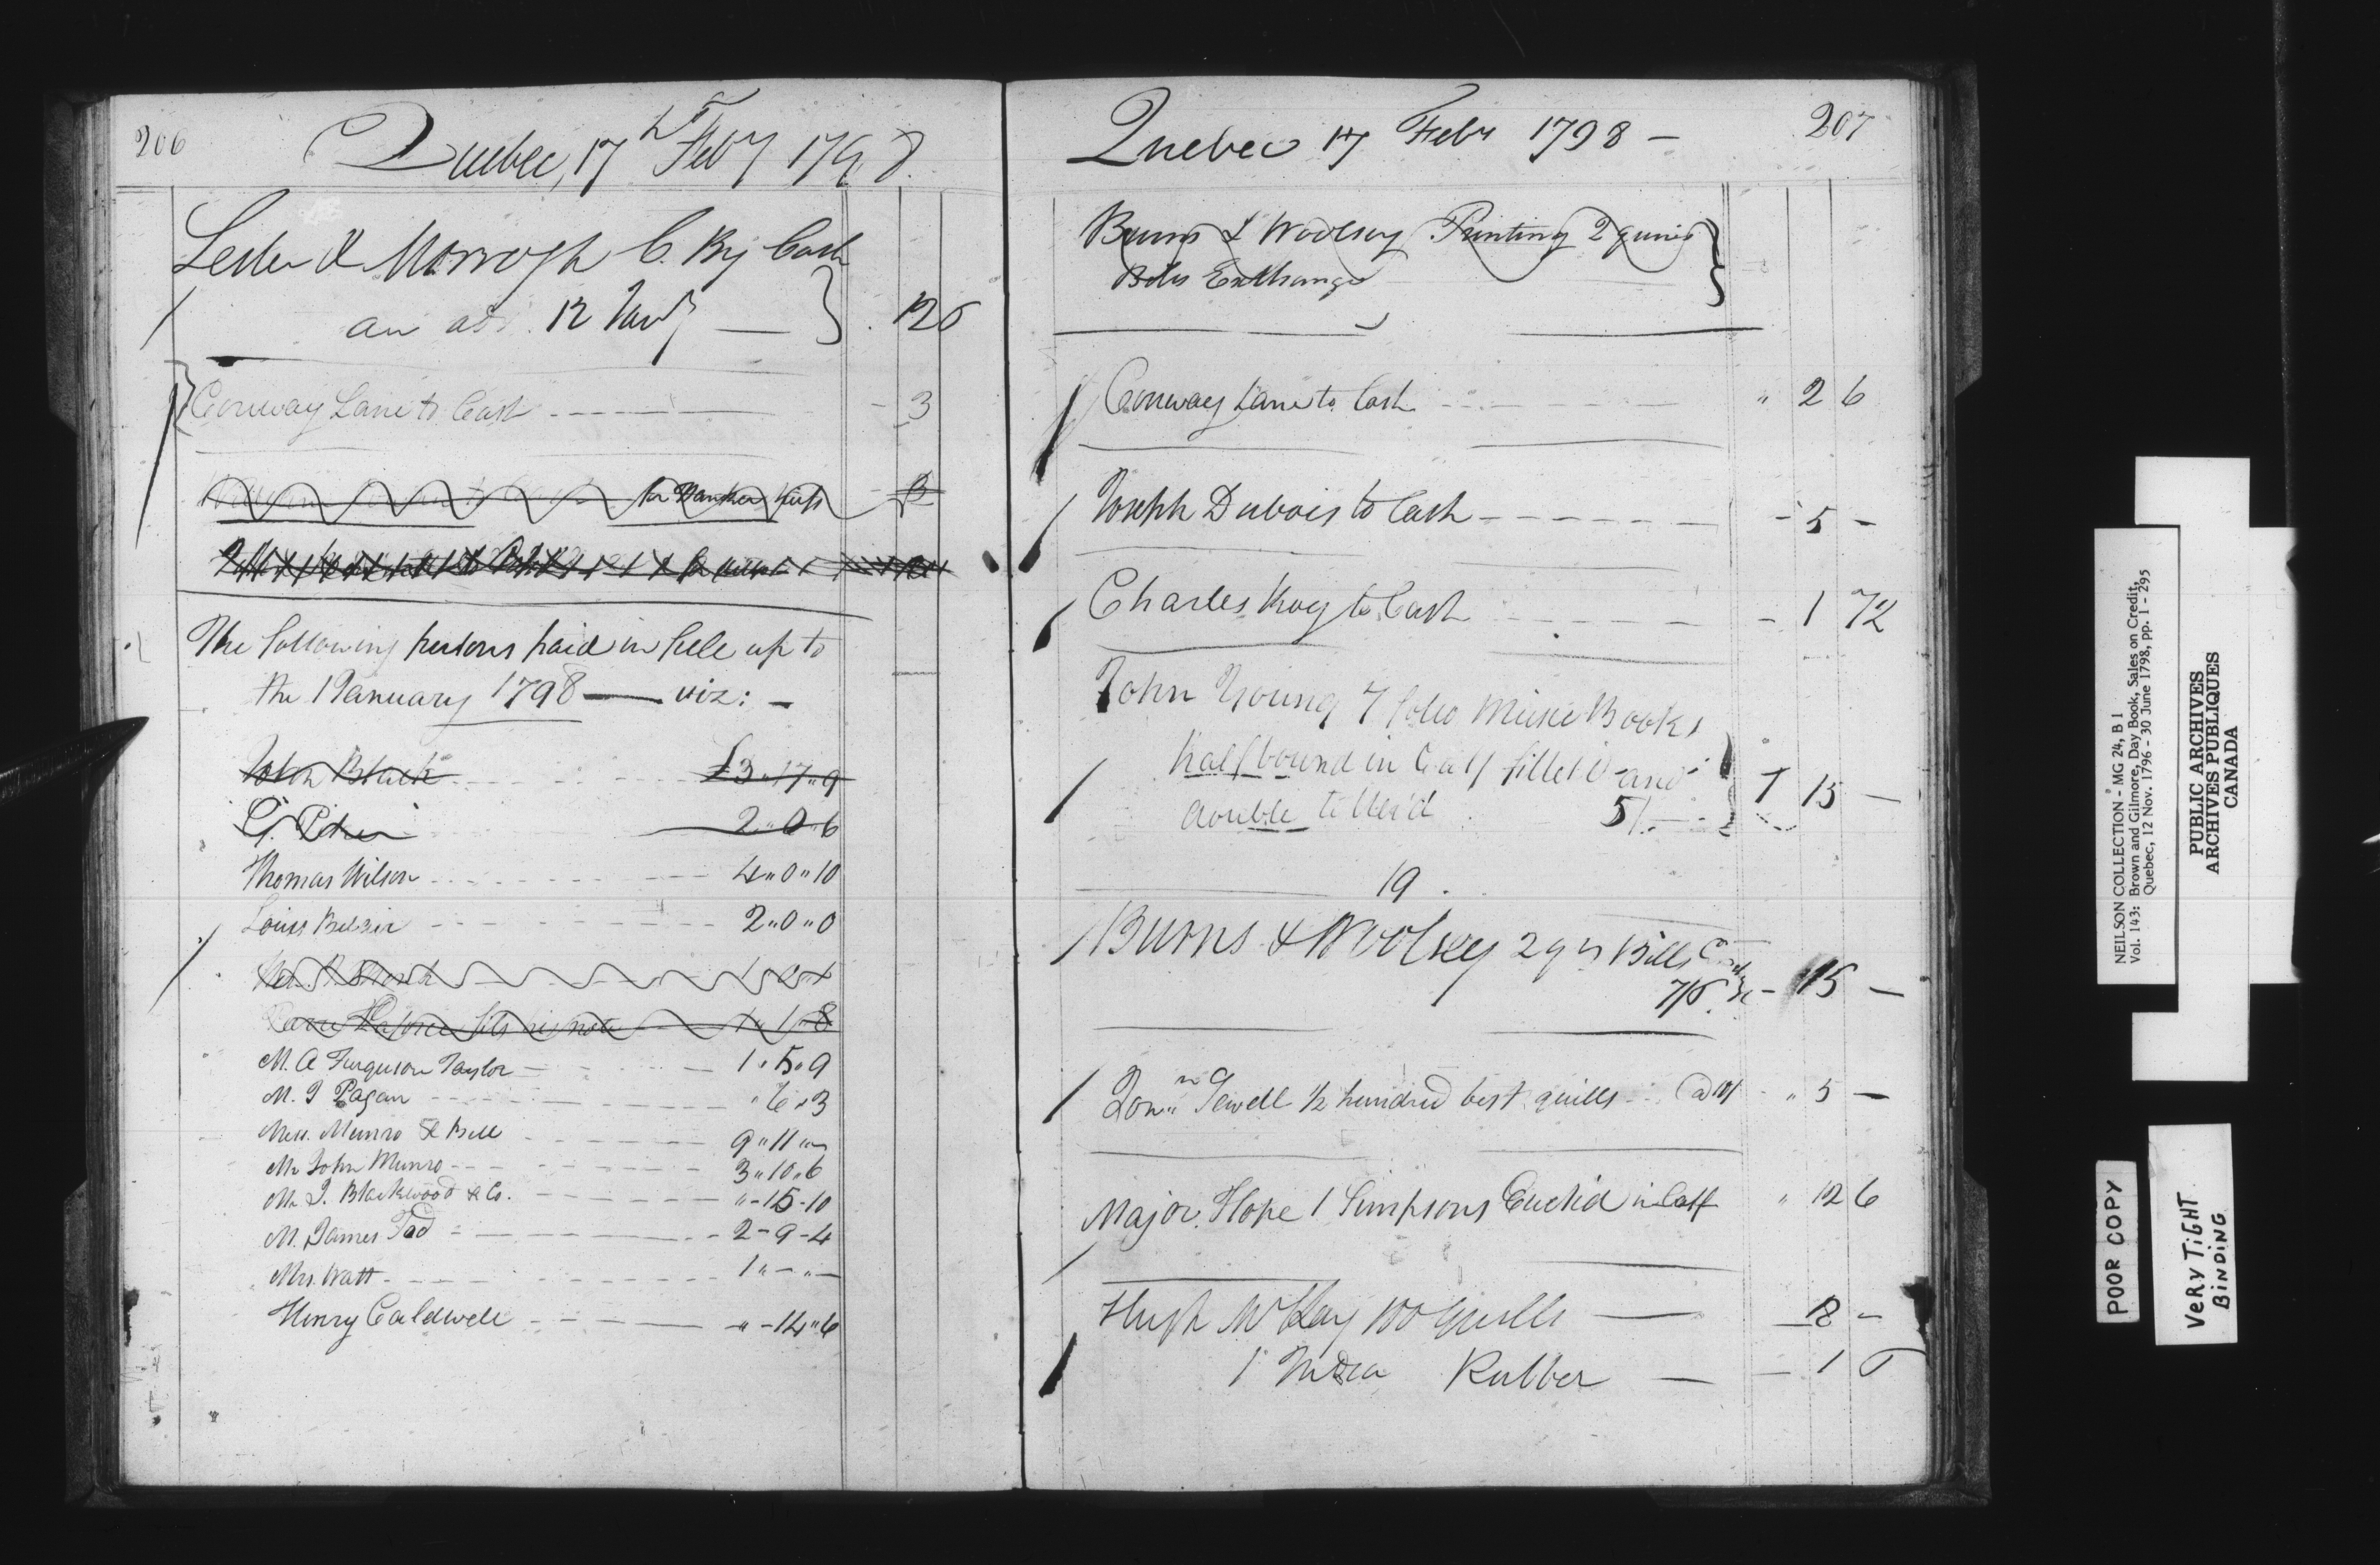 206
Quebec, 17th Feby 1798.
Lester & Morrogh C. By Cash
an acc. 12 Jany — } 12 6
Conway Lane to Cash - - - - - 3
for Hanker kiefs - 3
The following persons paid in full up to
the 1 January 1798 — viz: -
John Black £3 " 17 " 9
2 " 0 " 6
Thomas Wilson 4 " 0 " 10
Louis Belair 2 " 0 " 0
fils 1 " 1 " 8
M. A Ferguson Taylor 1 " 5 " 9
M. J Pagan " 6 " 3
Mess. Munro & Bell 9 " 11 " -
Mr John Munro 3 " 10 " 6
Mr J. Blackwood & Co. " - 15 - 10
M. James Tod 2 - 9 - 4
Mrs. Watt 1 " - " -
Henry Caldwell " - 14 " 6
Quebec 17 Feby 1798 — 207
Burns & Woolsey Printing 2 quires
Bills Exchange
Conway Lane to Cash " 2 6
Joseph Dubois to Cash - - - - - - 5 -
Charles Roy to Cash - 1 7½
John Young 7 folio Music Books
half bound in Calf fillet'd and
double titled 5/. 1 15 —
19
Burns & Woolsey 2 qrs Bills
7/6. - 15 —
Jonn. Sewell ½ hundred best quills @ 10/ " 5 —
Major Hope 1 Simpsons Euclid in Calf " 12 6
Hugh McKay 100 quills — 12 -
1 India Rubber — - 1 6
NEILSON COLLECTION - MG 24, B 1
Vol. 143: Brown and Gilmore, Day Book, Sales on Credit,
Quebec, 12 Nov. 1796 - 30 June 1798, pp. 1 - 295
PUBLIC ARCHIVES
ARCHIVES PUBLIQUES
CANADA
POOR COPY
VERY TIGHT
BINDING